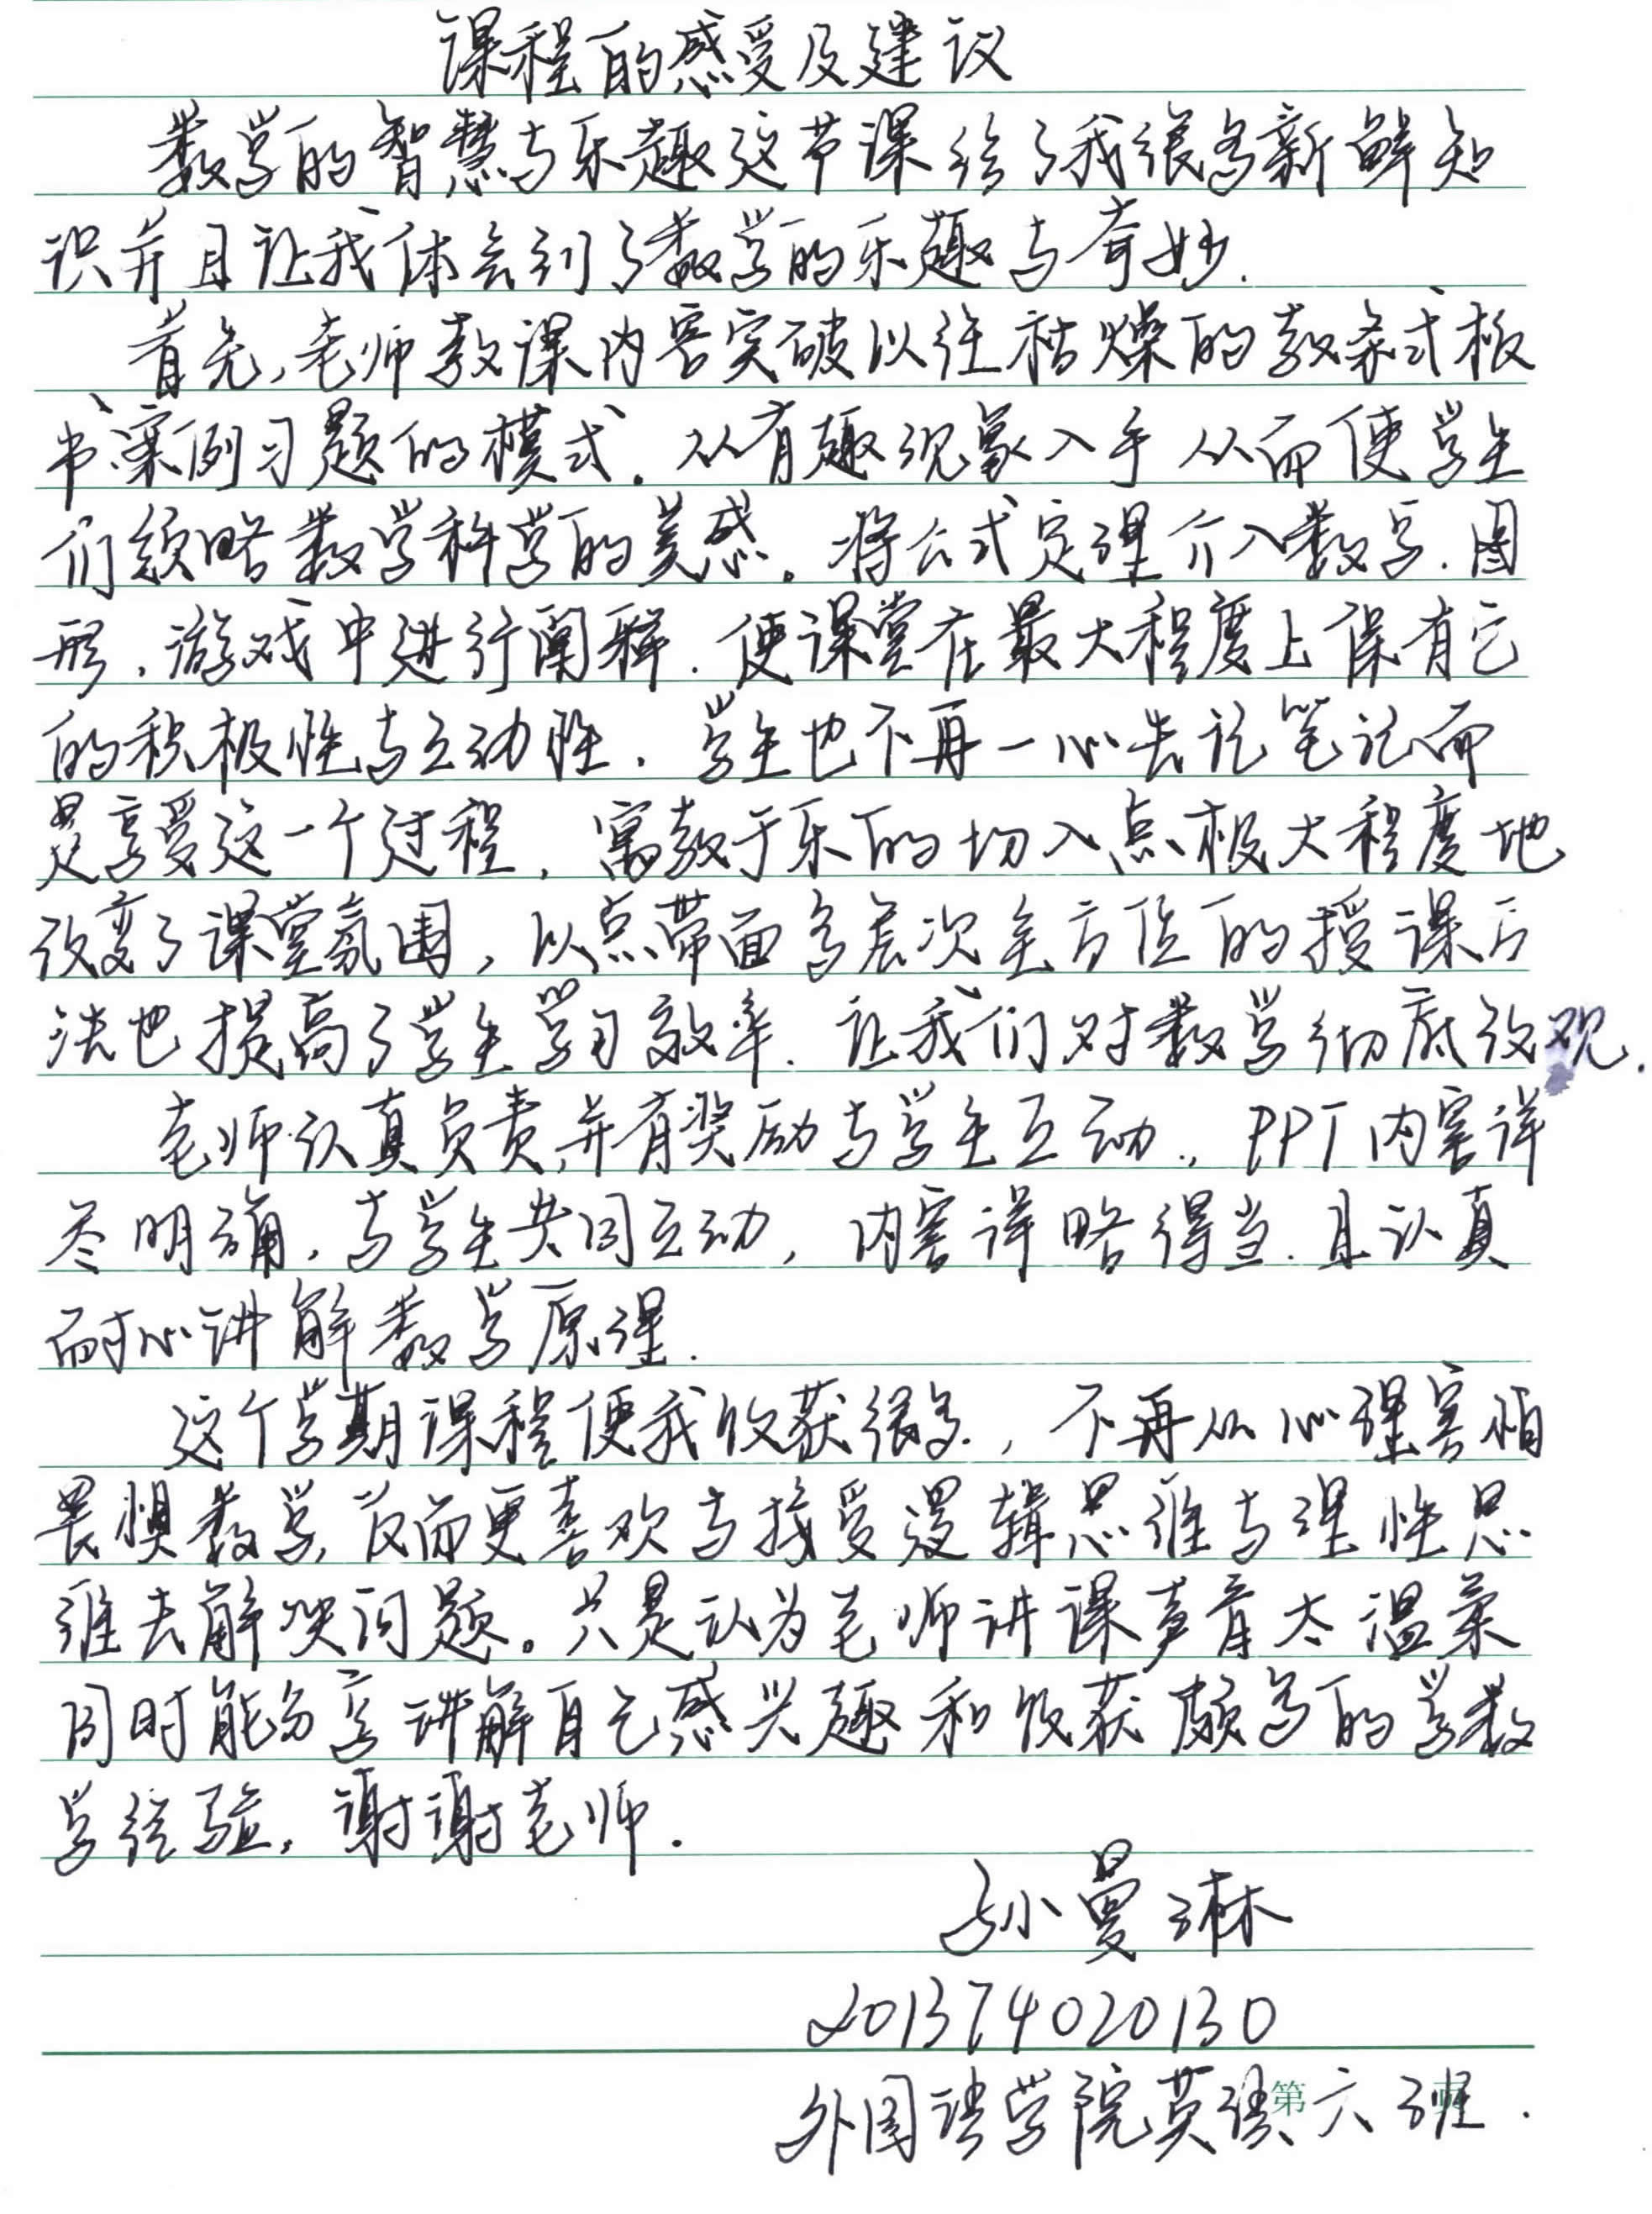 课程的感受及建议
数学的智慧与乐趣这节课给了我很多新鲜知
识并且让我体会到了数学的乐趣与奇妙.
首先,老师教课内容突破以往枯燥的教条式板
书、案例习题的模式.从有趣现象入手从而使学生
们领略数学科学的美感。将公式定理介入数学.图
形.游戏中进行阐释.使课堂在最大程度上保有它
的积极性与互动性.学生也不再一心去记笔记而
是享受这一个过程,寓教于乐的切入点极大程度地
改变了课堂氛围,以点带面多层次全方位的授课方
法也提高了学生学习效率.让我们对数学彻底改观.
老师认真负责,并有奖励与学生互动.,PPT内容详
尽明确.与学生共同互动,内容详略得当.且认真
耐心讲解数学原理.
这个学期课程使我收获很多.,不再从心理害怕
畏惧数学,反而更喜欢与接受逻辑思维与理性思
维去解决问题。只是认为老师讲课声音太温柔
同时能分享讲解自己感兴趣和收获颇多的学数
学经验.谢谢老师.
孙曼琳
201374020130
外国语学院英语第六班.